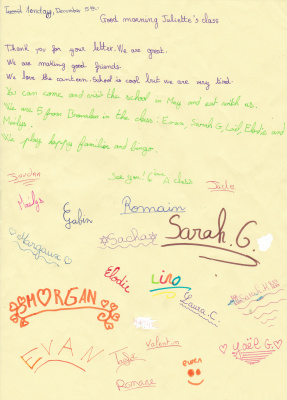 Monday, December 5th
Good morning Juliette's class
Thank you for your letter. We are great.
We are making good friends.
We love the canteen. School is cool but we are very tired.
You can come and visit the school in May and eat with us.
We are 5 from in the class: Evan, Sarah G, Lino, Elodie and
Maïlys.
We play happy families and bingo.
See you! 6ème A class
Jade
Maïlys
Gabin
Romain
Margaux
Sacha
Sarah.G.
Elodie
Lino
Laura.C.
MORGAN
EVAN
Valentin
Romane
Yaël G.